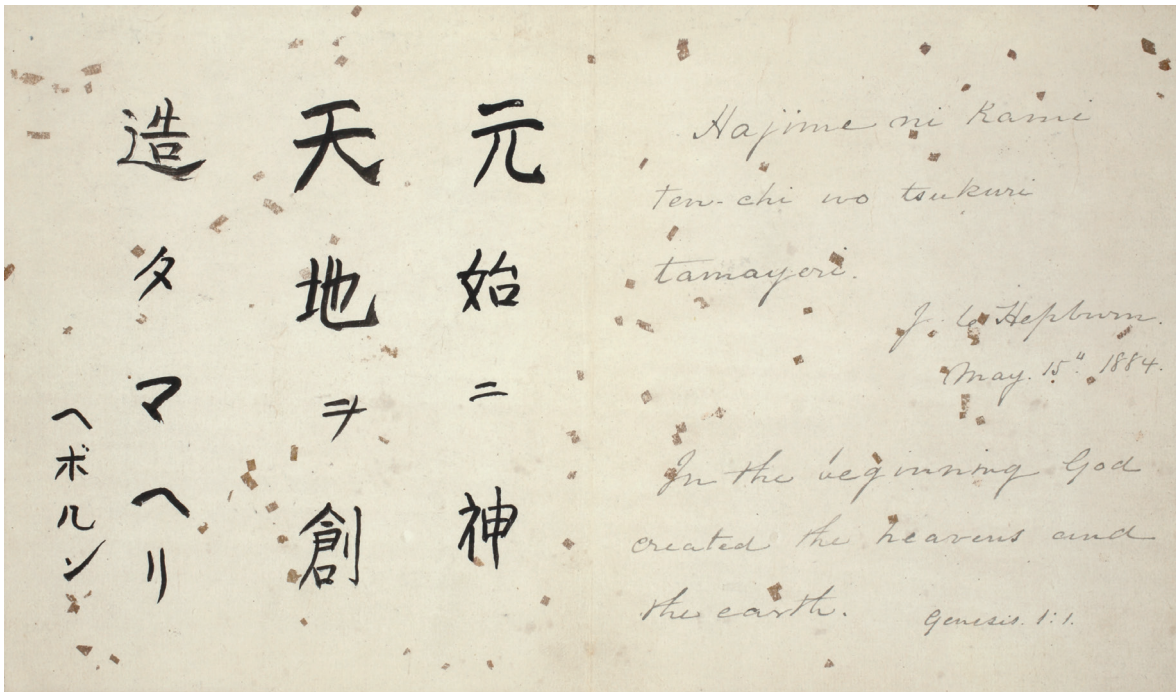 元始ニ神
天地ヲ創
造タマヘリ
ヘボルン
Hajime ni Kami
ten-chi wo tsukuri
tamayeri.
J. C. Hepburn.
May. 15" 1884.
In the beginning God
created the heavens and
the earth. Genesis. 1:1.